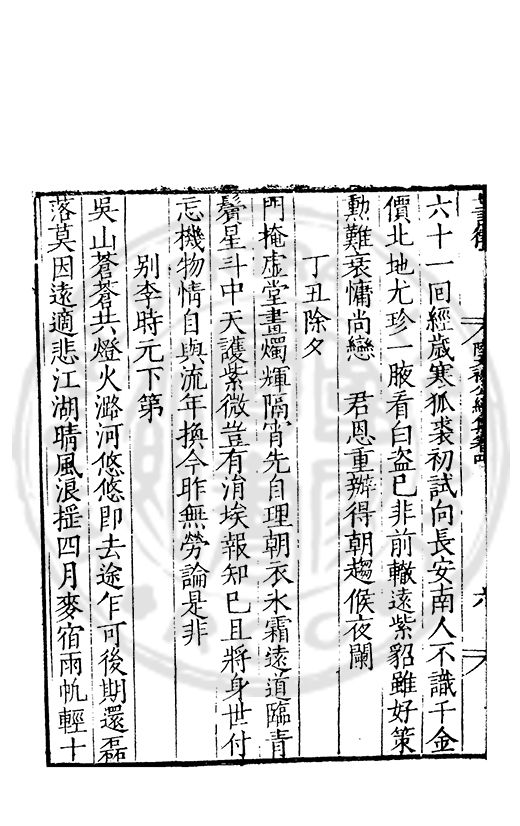 六十一回經歲寒狐裘初試向長安南人不識千金
價北地尤珍一腋看白盜已非前轍遠紫貂雖好策
勳難衰慵尚戀　君恩重辦得朝趨候夜闌
丁丑除夕
門掩虛堂晝燭輝隔宵先自理朝衣氷霜遠道臨青
鬢星斗中天護紫微豈有涓埃報知己且將身世付
忘機物情自與流年換今昨無勞論是非
別李時元下第
吳山蒼蒼共燈火潞河悠悠即去途乍可後期還磊
落莫因遠適悲江湖晴風浪搖四月麥宿雨帆輕十